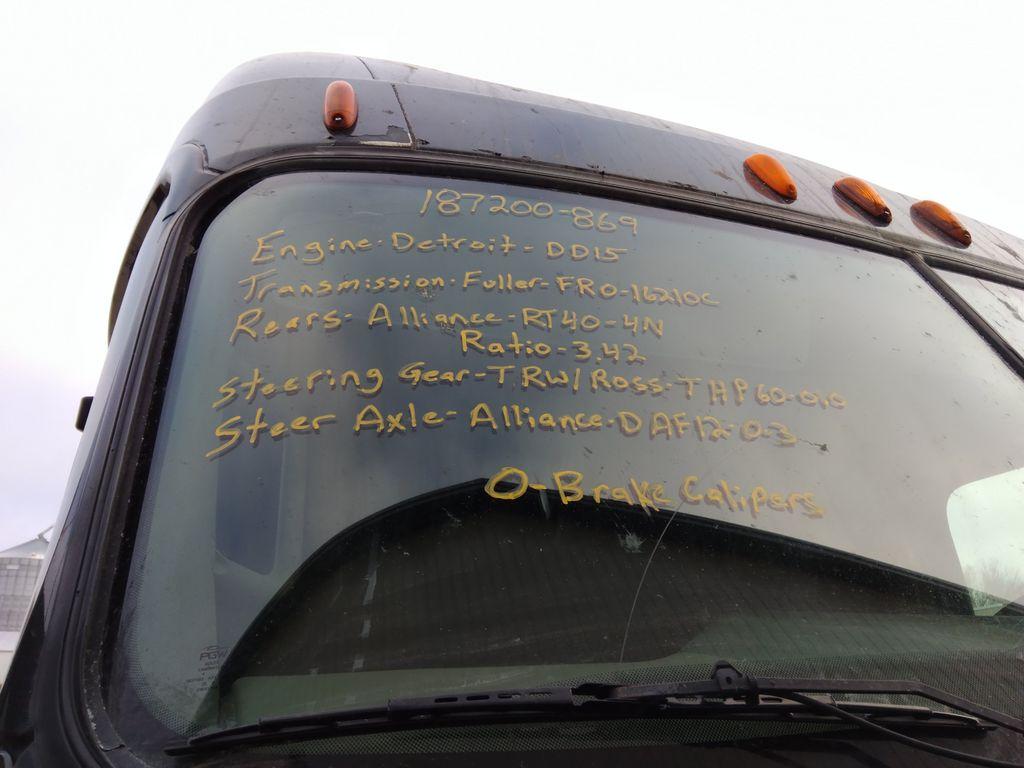 187200-869
Engine-Detroit-DD15
Transmission-Fuller-FRO-16210C
Rears-Alliance-RT40-4N
Ratio-3.42
Steering Gear-TRW/Ross-THP60-010
Steer Axle-Alliance-DAF12-0-3
0-Brake Calipers
PGW